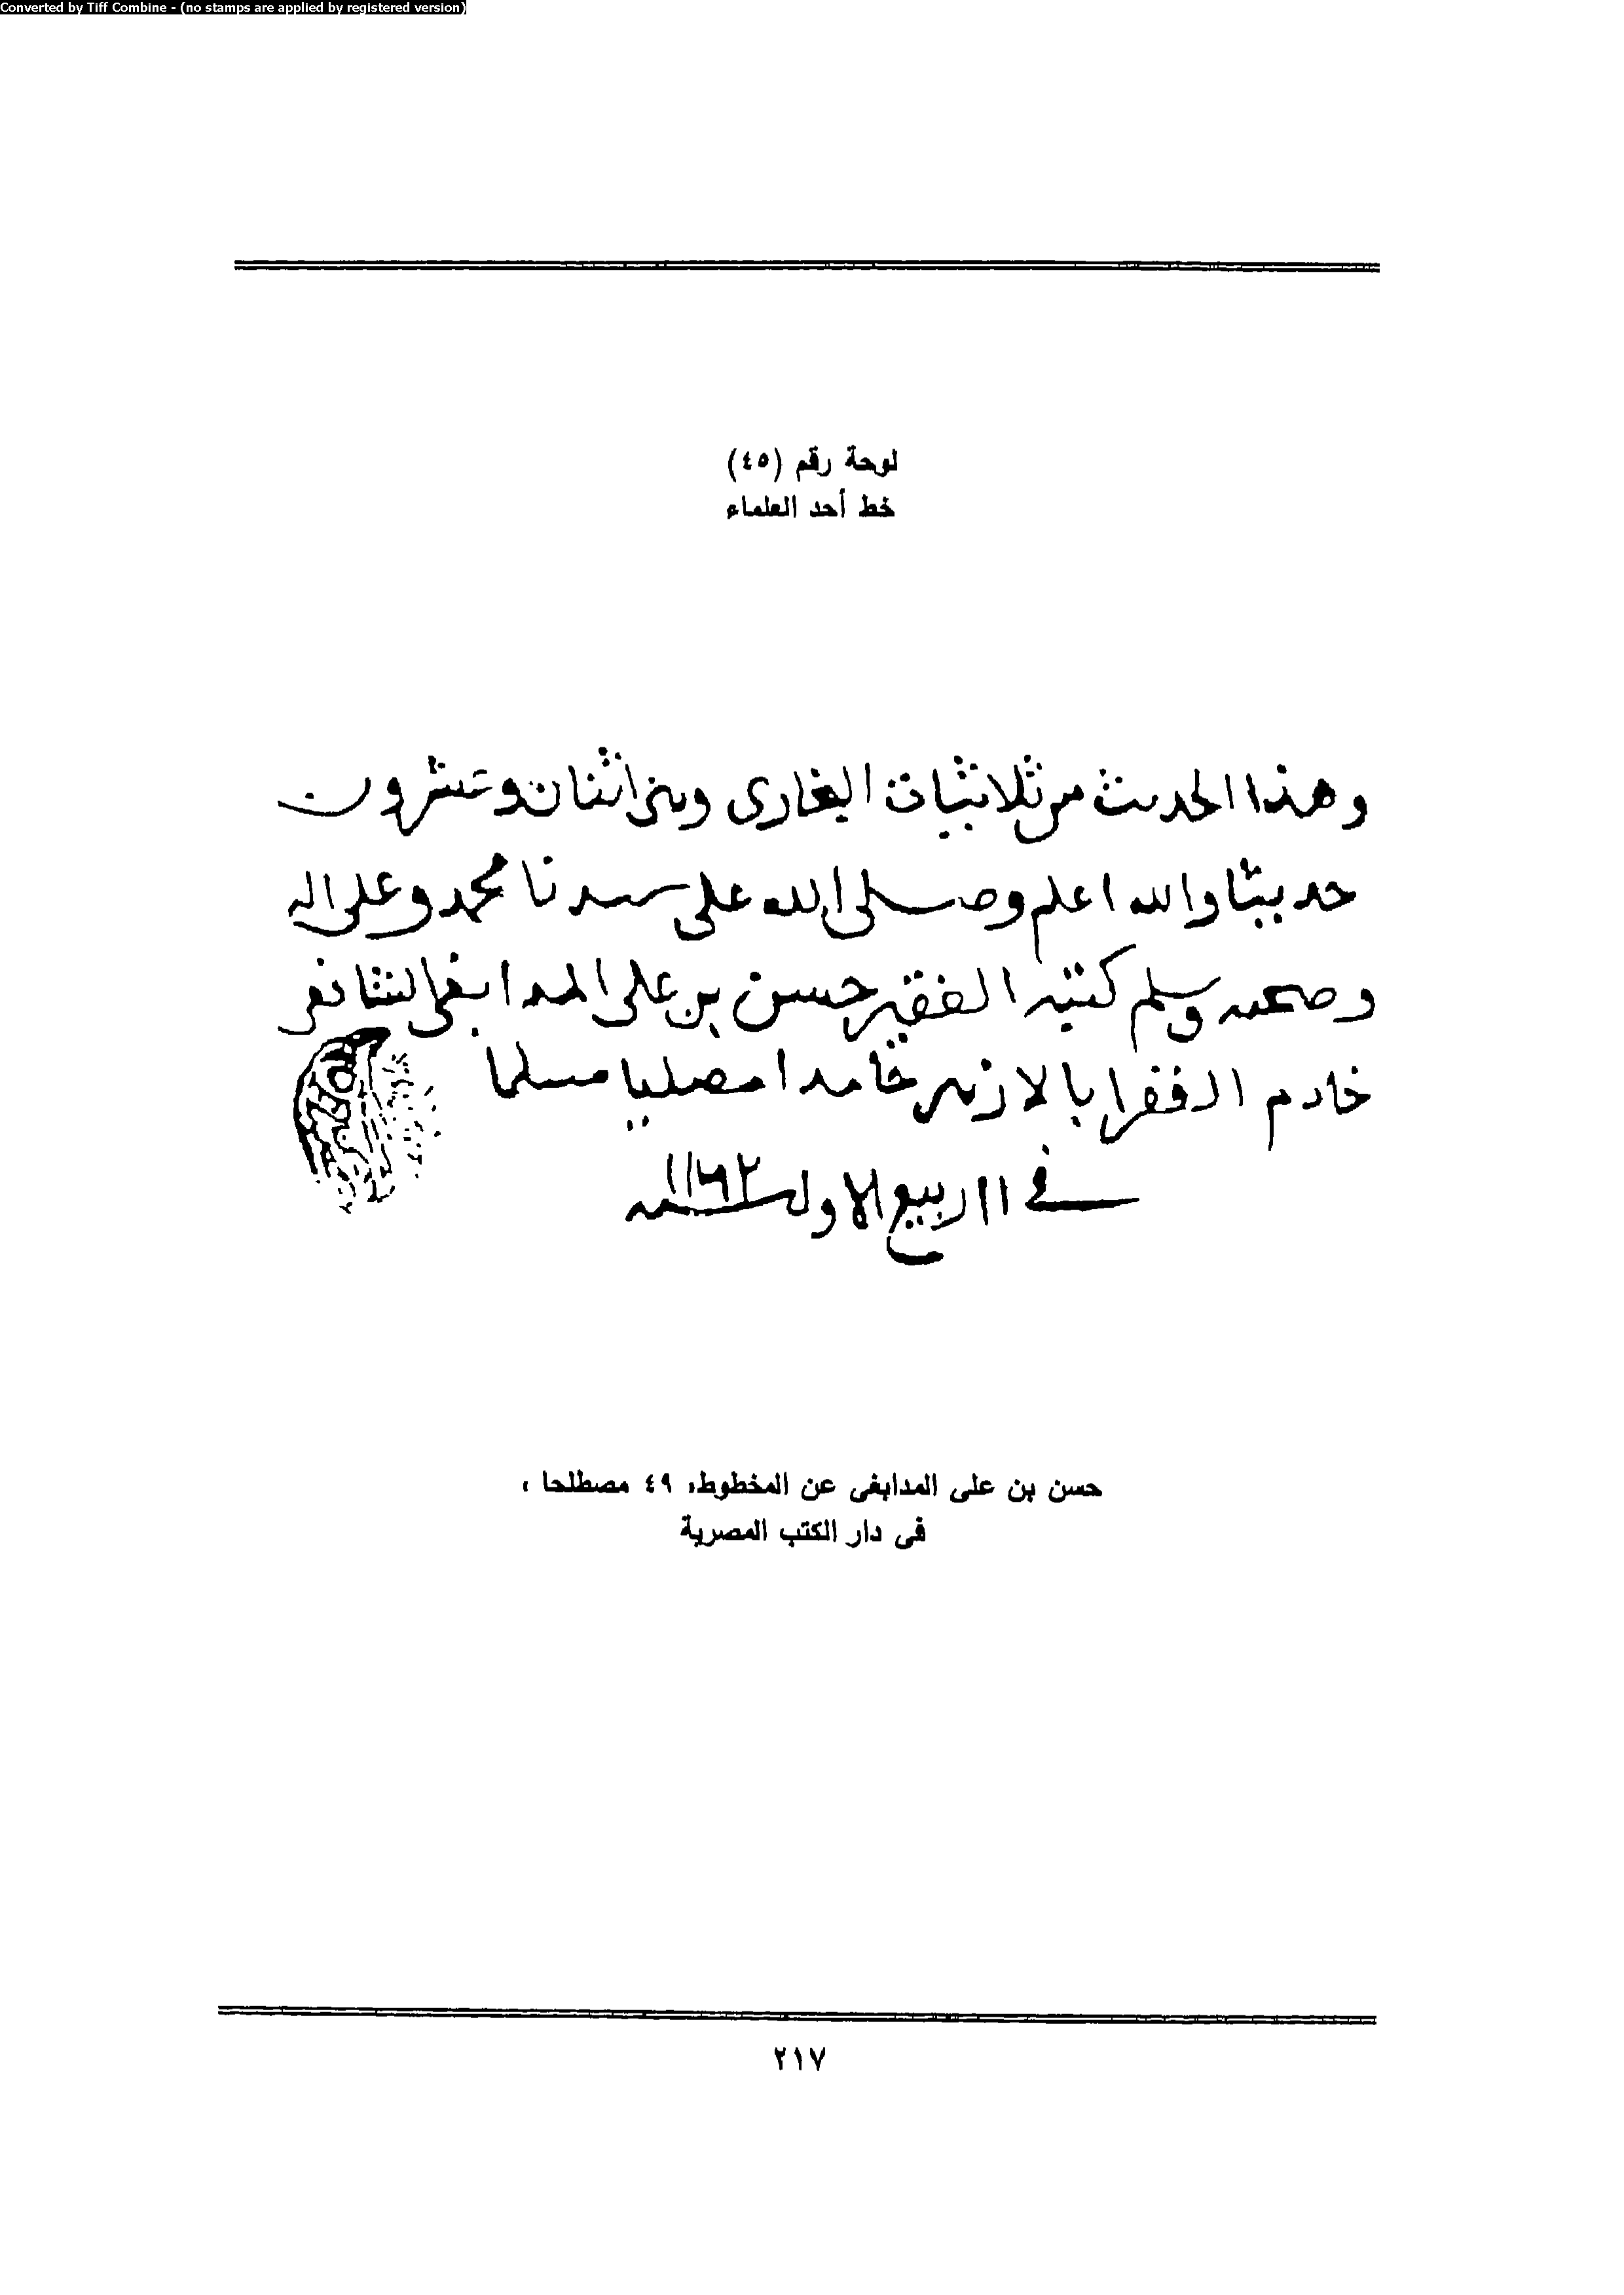 Converted by Tiff Combine - (no stamps are applied by registered version)
لوحة رقم (٤٥)
خط أحد العلماء
وهذا الحديث من ثلاثيات البخارى وهى اثنان وعشرون
حديثا والله اعلم وصلى الله على سيدنا محمد وعلى اله
وصحبه وسلم كتبه الفقير حسن بن على المدابغى الشافعى
خادم الفقرا بالازهر حامدا مصليا مسلما
فى ١١ ربيع الاول سنه ١١٦٢
حسن بن على المدابغى عن المخطوط، ٤٩ مصطلحا ،
فى دار الكتب المصرية
٢١٧